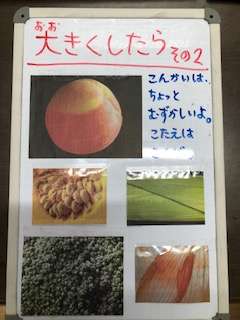 おお
大きくしたら その2
こんかいは、
ちょっと
むずかしいよ。
こたえは